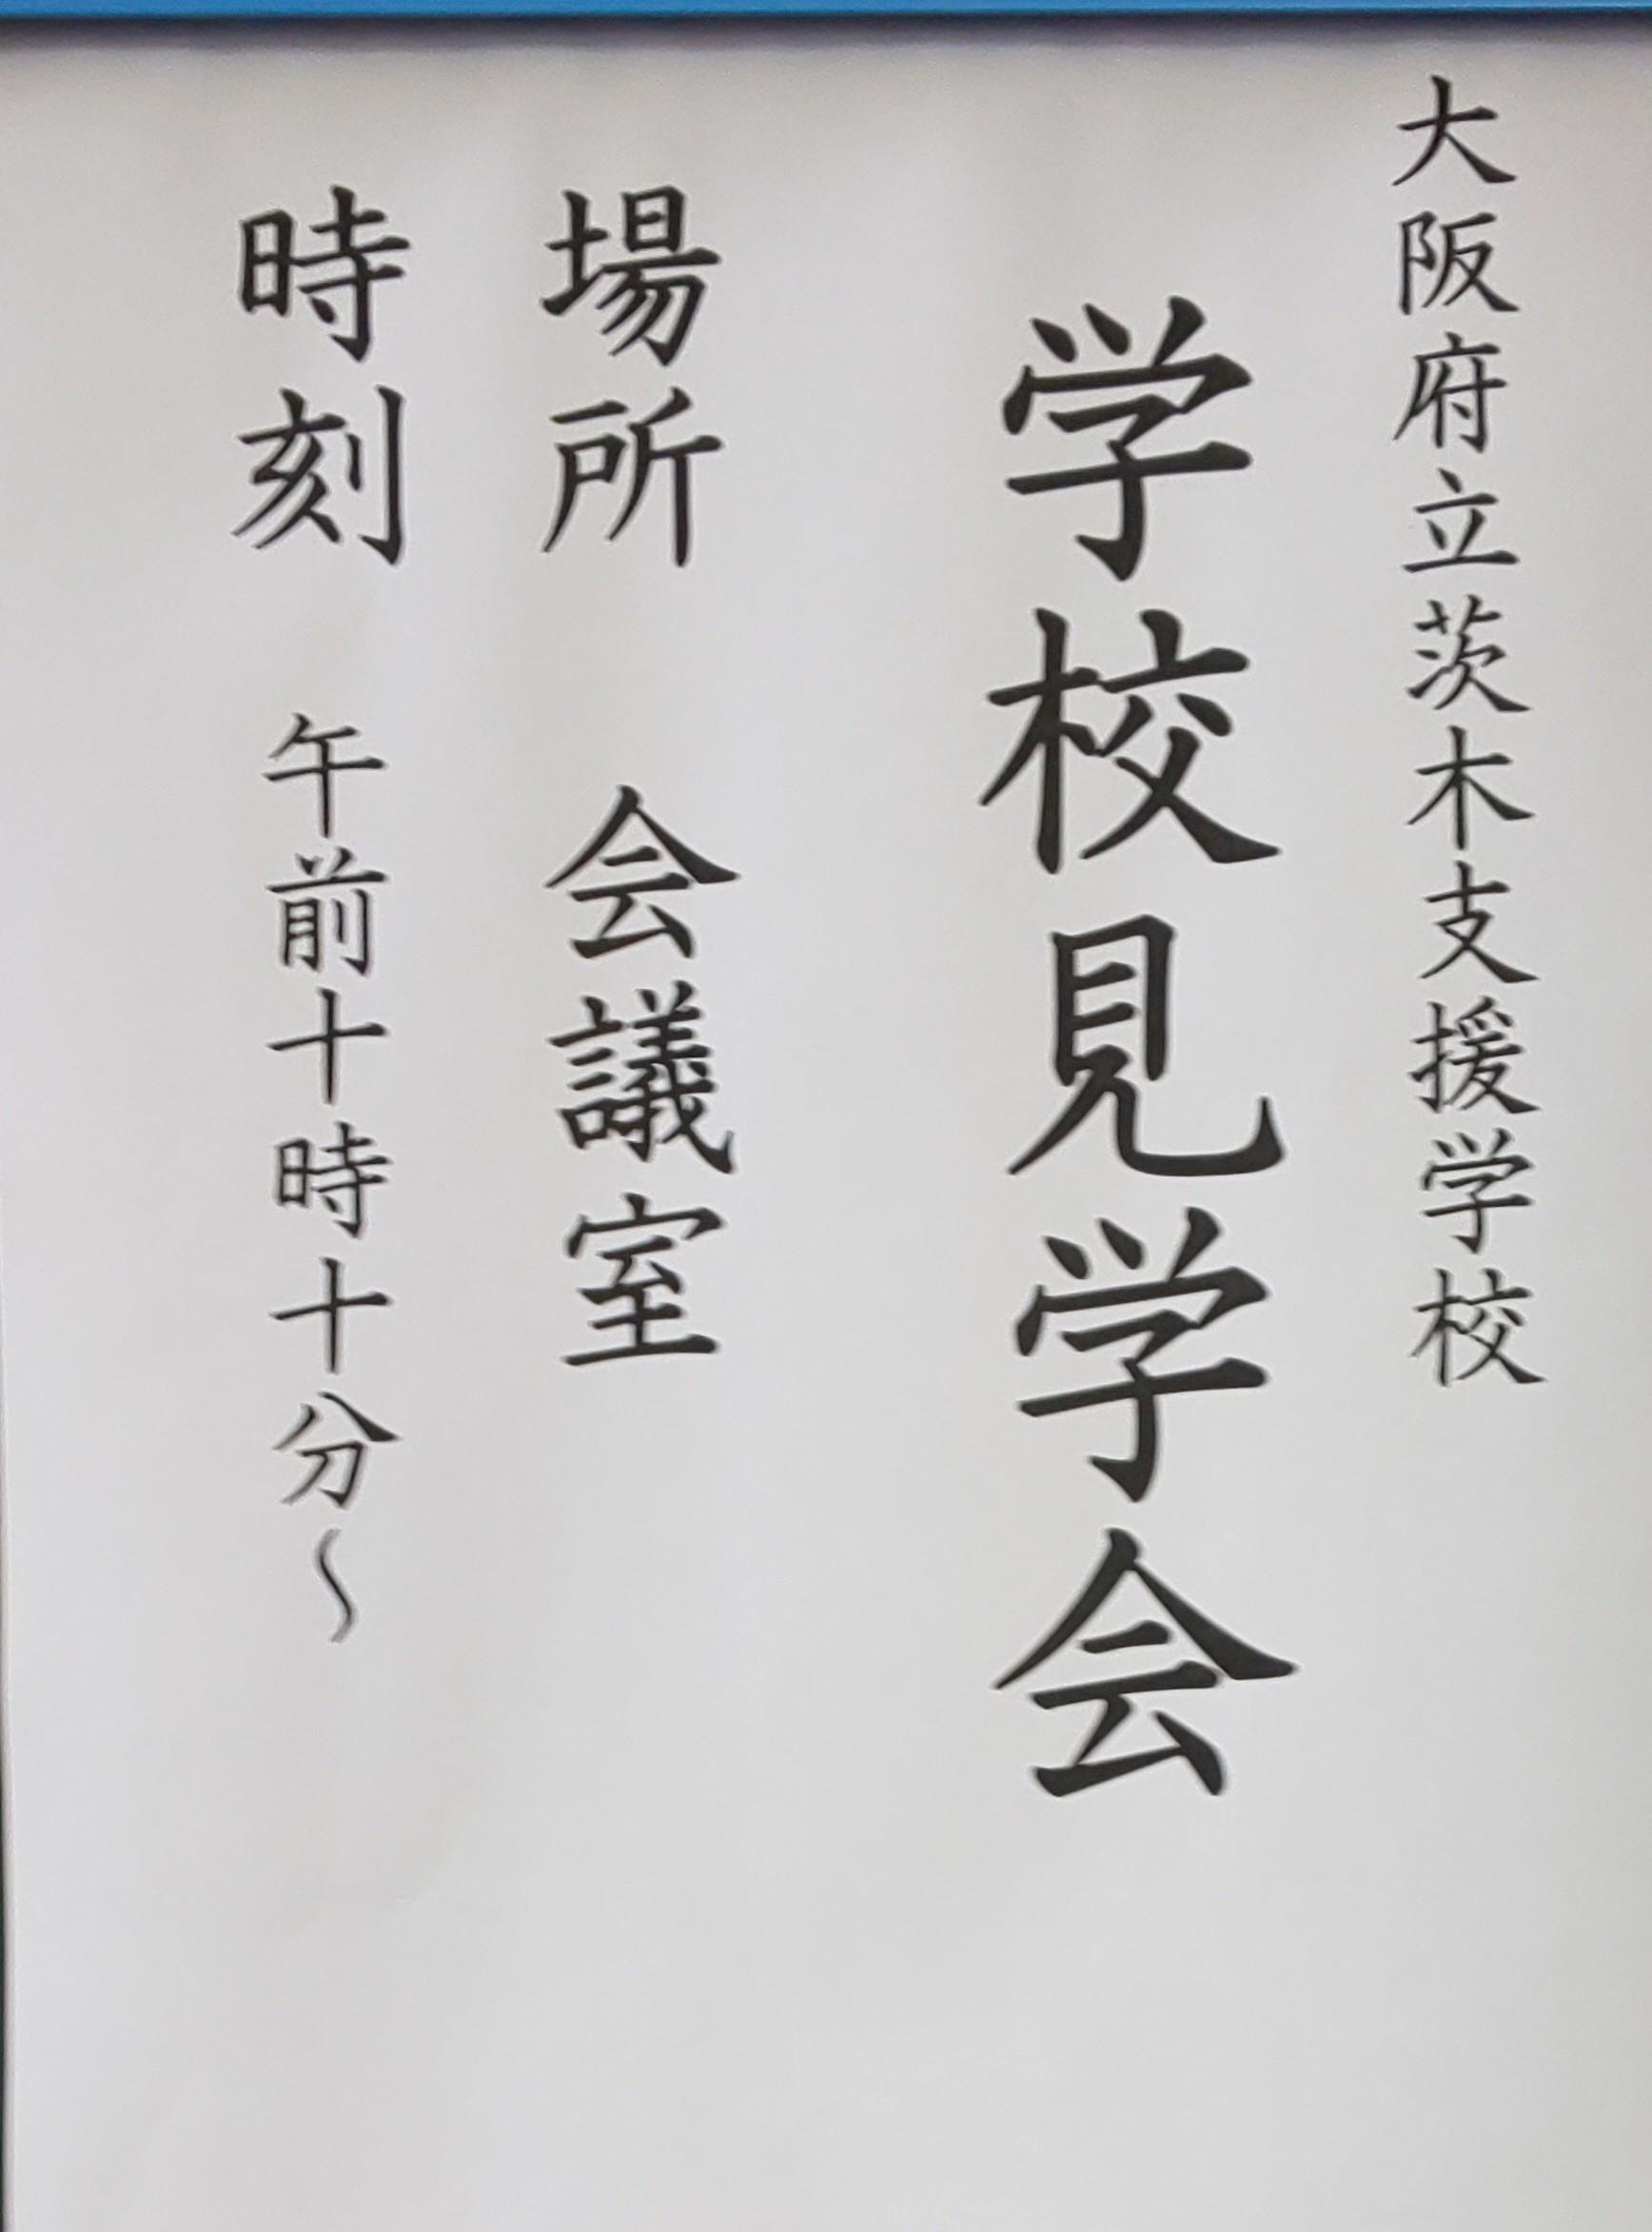 大阪府立茨木支援学校
学校見学会
場所　会議室
時刻　午前十時十分～